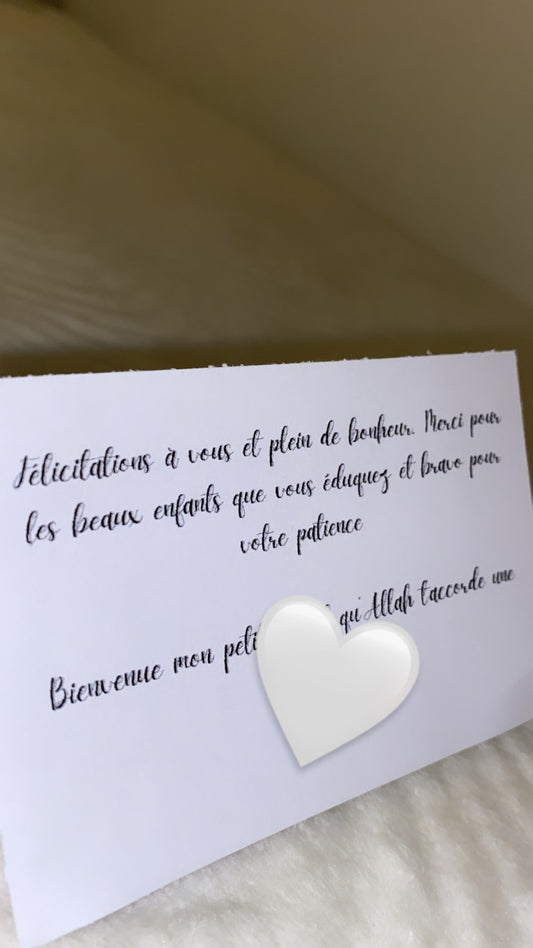 Félicitations à vous et plein de bonheur. Merci pour
les beaux enfants que vous éduquez et bravo pour
votre patience
Bienvenue mon qu'Allah t'accorde une